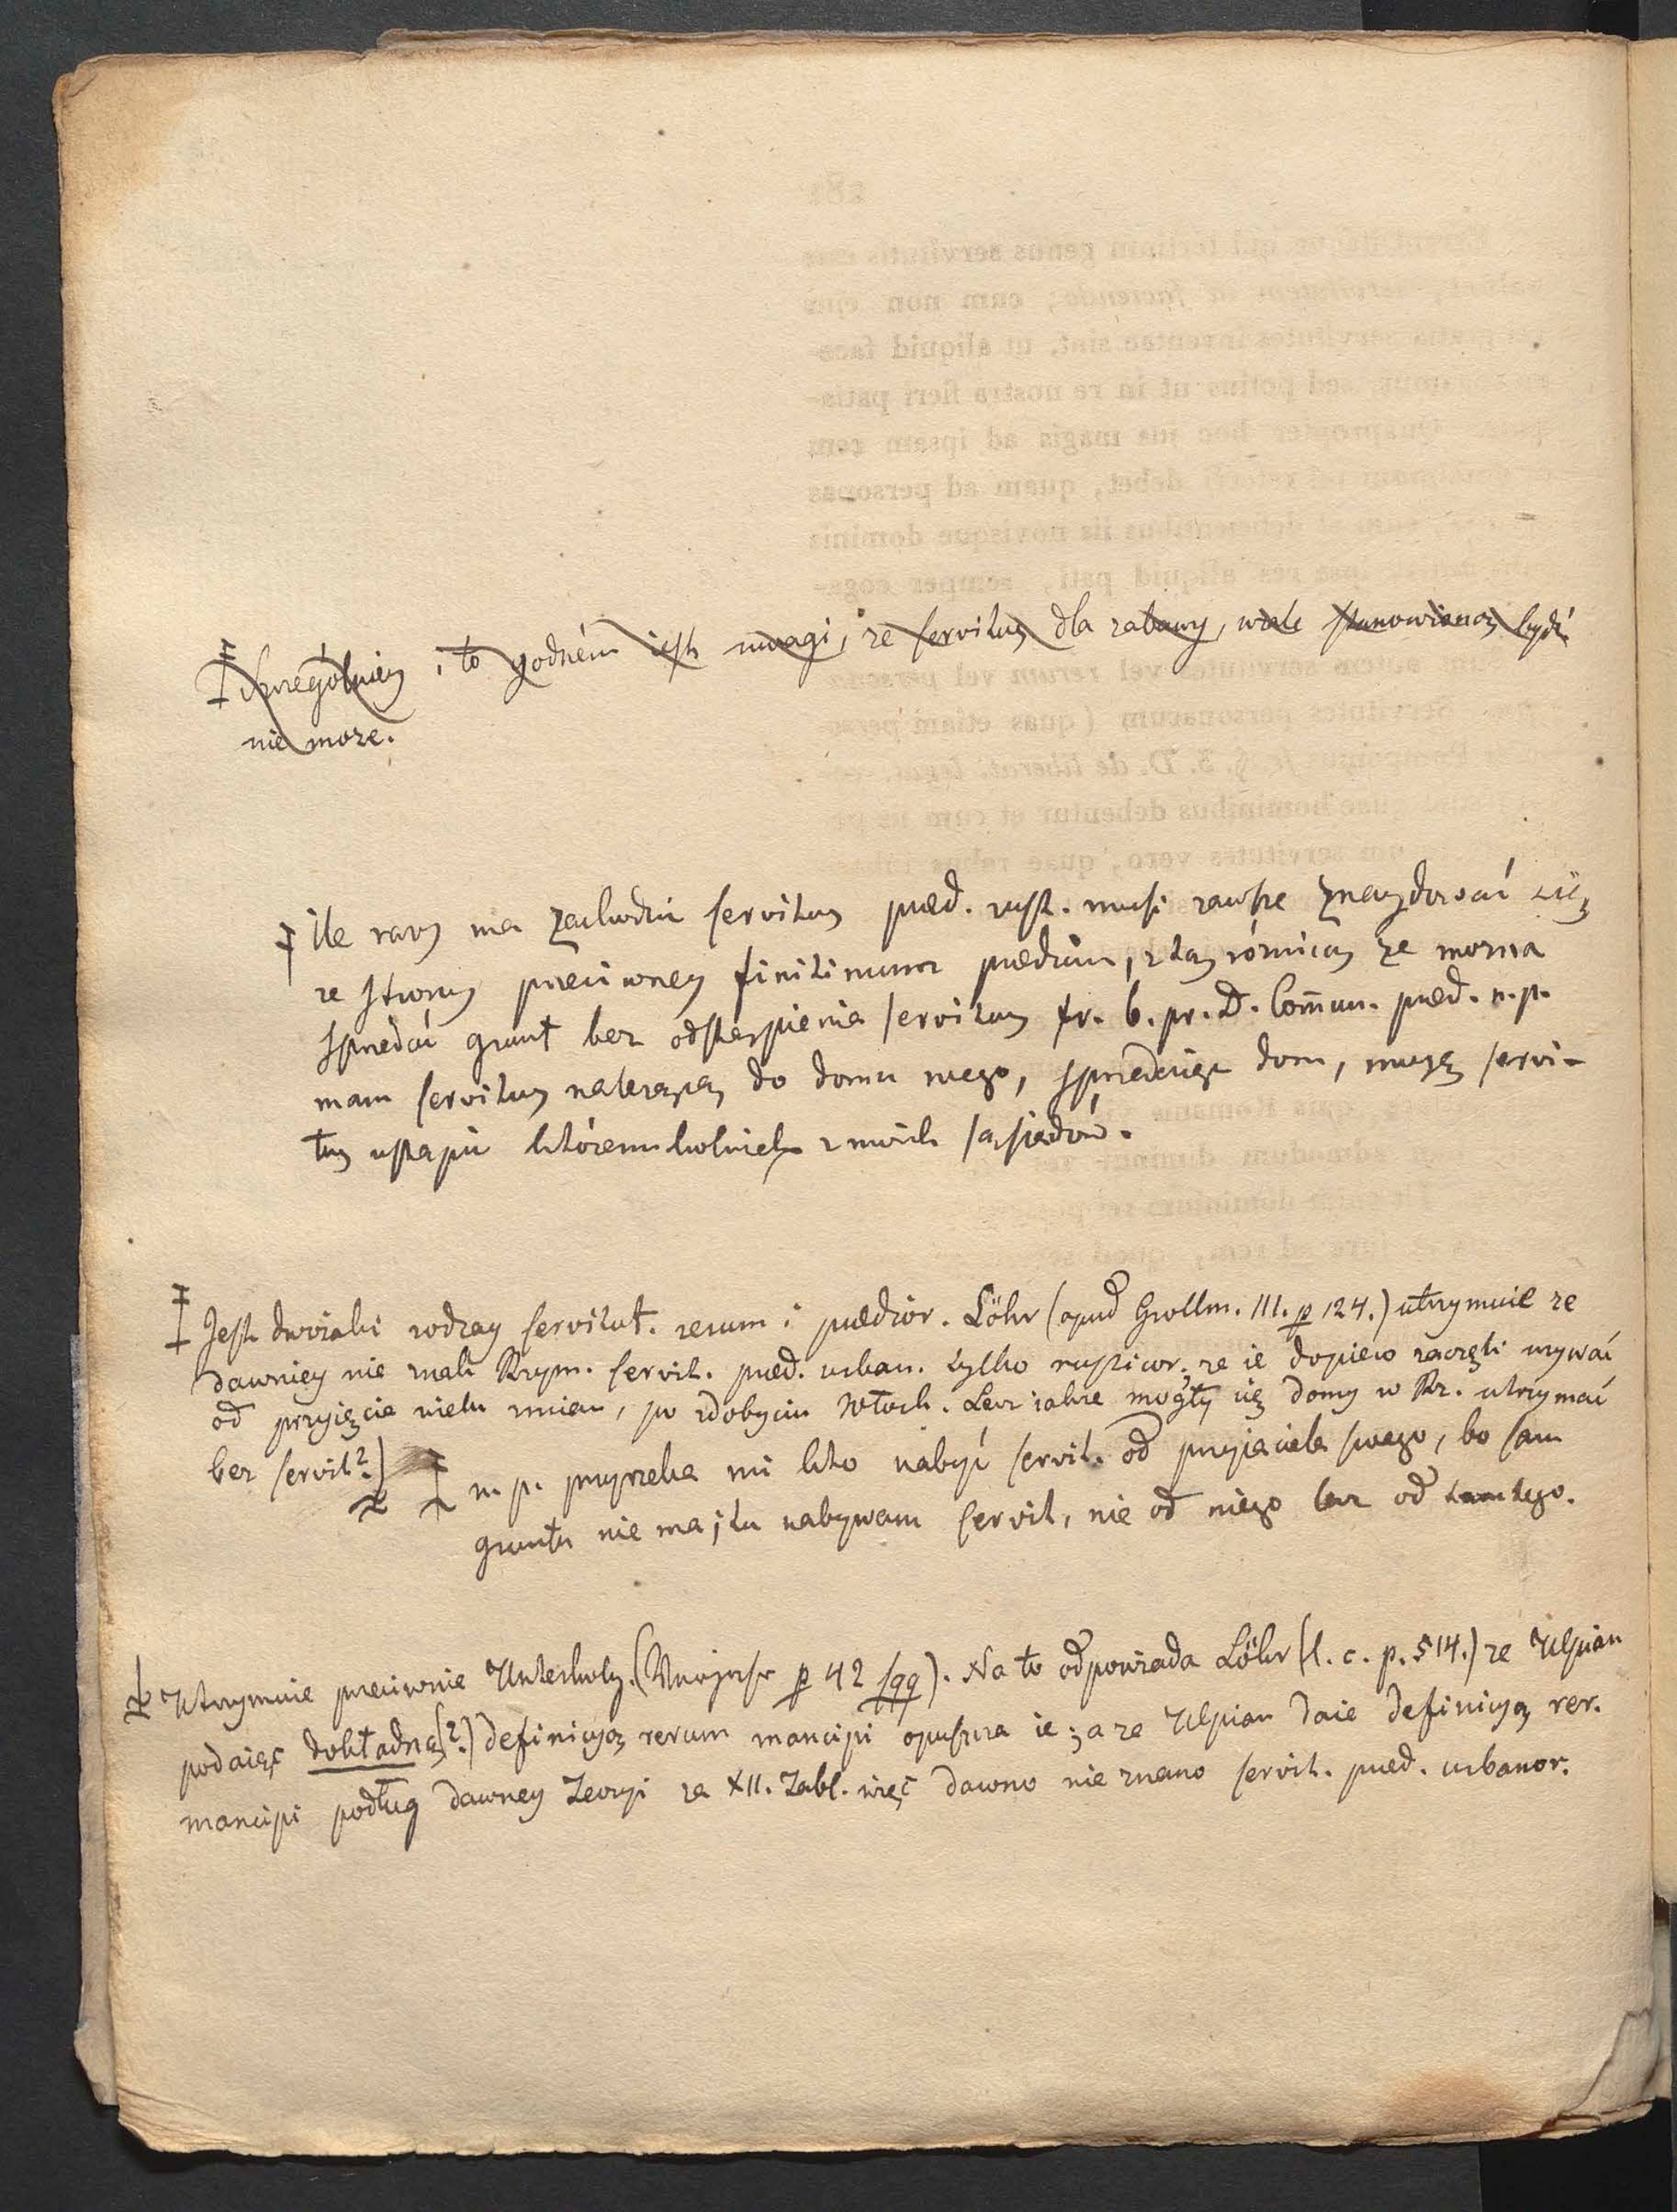 Szczególniey i to godném iest uwagi, ze servitus dla zabawy, wcale stanowioną bydź
nie moze.
Ile razy ma zachodzić servitus præd. rust. musi zawsze znaydować się
ze strony przeciwney finitimum prædium, z tą róznicą ze mozna
sprzedać grunt bez odstąpienia servitus fr. 6. pr. D. Com̄un. præd. n. p.
mam servitus nalezącą do domu mego, sprzedaiąc dom, muszę servi-
tus ustąpić któremukolwiek z moich sąsiadów.
Jest dwoiaki rodzay servitut. rerum i prædior. Löhr (apud Grollm. III. p 124.) utrzymuie ze
dawniey nie znali Rzym. servit. præd. urban. tylko rusticor; ze ie dopiero zaczęli uzywać
od przyięcia wielu mien, po zdobyciu Włoch. Lecz iakze mogły się domy w Rz. utrzymać
bez servit?)
n. p. przyrzeka mi kto nabyć servit. od przyjaciela swego, bo sam
gruntu nie ma; tu nabywam servit, nie od niego lecz od tamtego.
Utrzymuie przeciwnie Unterholz. ( p 42 sqq). Na to odpowiada Löhr (l. c. p. 514.) ze Ulpian
podaiąc dokładną(?) definicyą rerum mancipi opuszcza ie; a ze Ulpian daie definicyą rer.
mancipi podług dawney Teoryi za XII. Tabl. więc dawno nie znano servit. præd. urbanor.